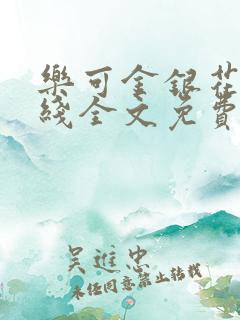 樂可金銀花
綫全文免費
吴進忠
未任同意禁止转载